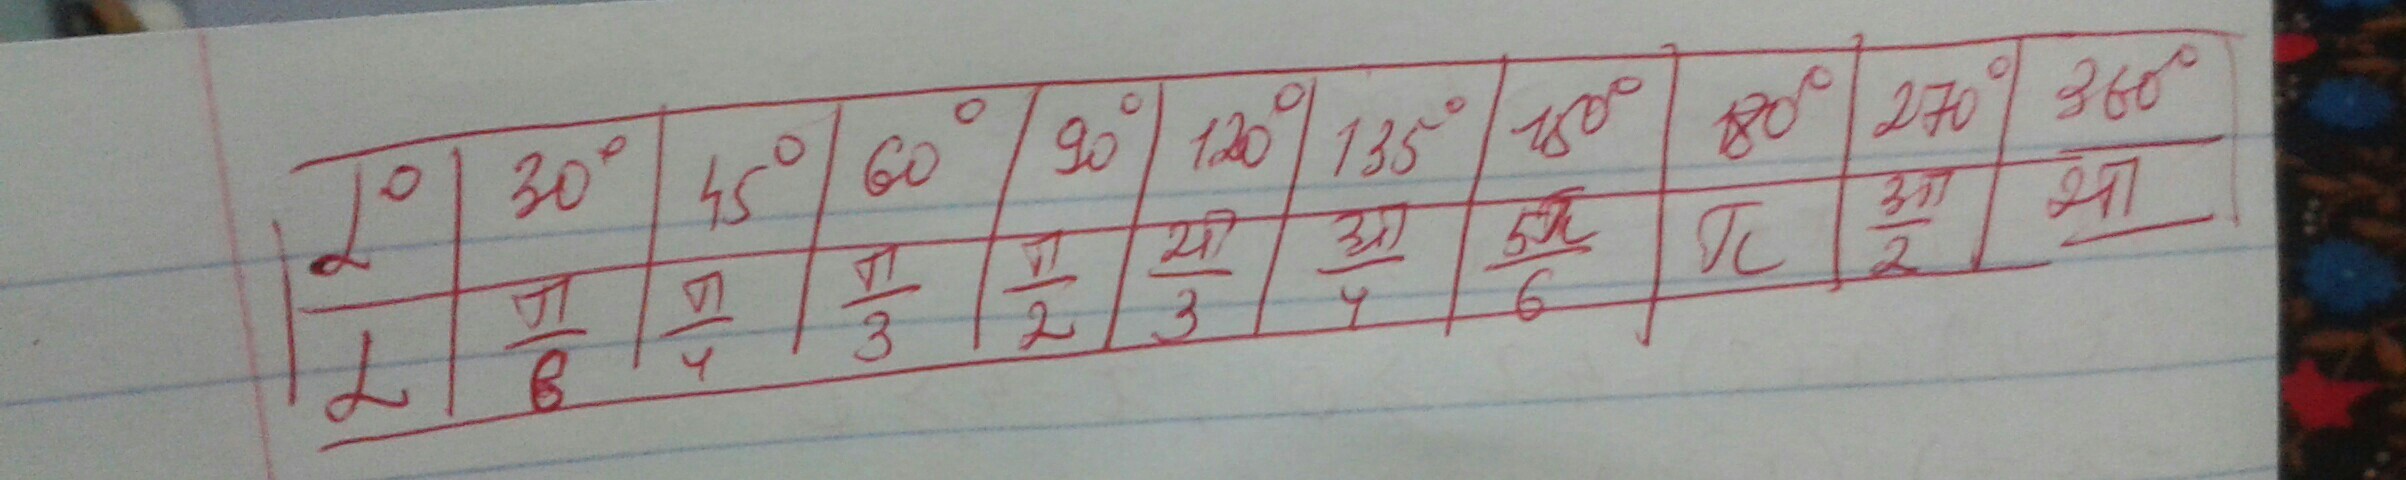 α° 30° 45° 60° 90° 120° 135° 150° 180° 270° 360°
α π/6 π/4 π/3 π/2 2π/3 3π/4 5π/6 π 3π/2 2π